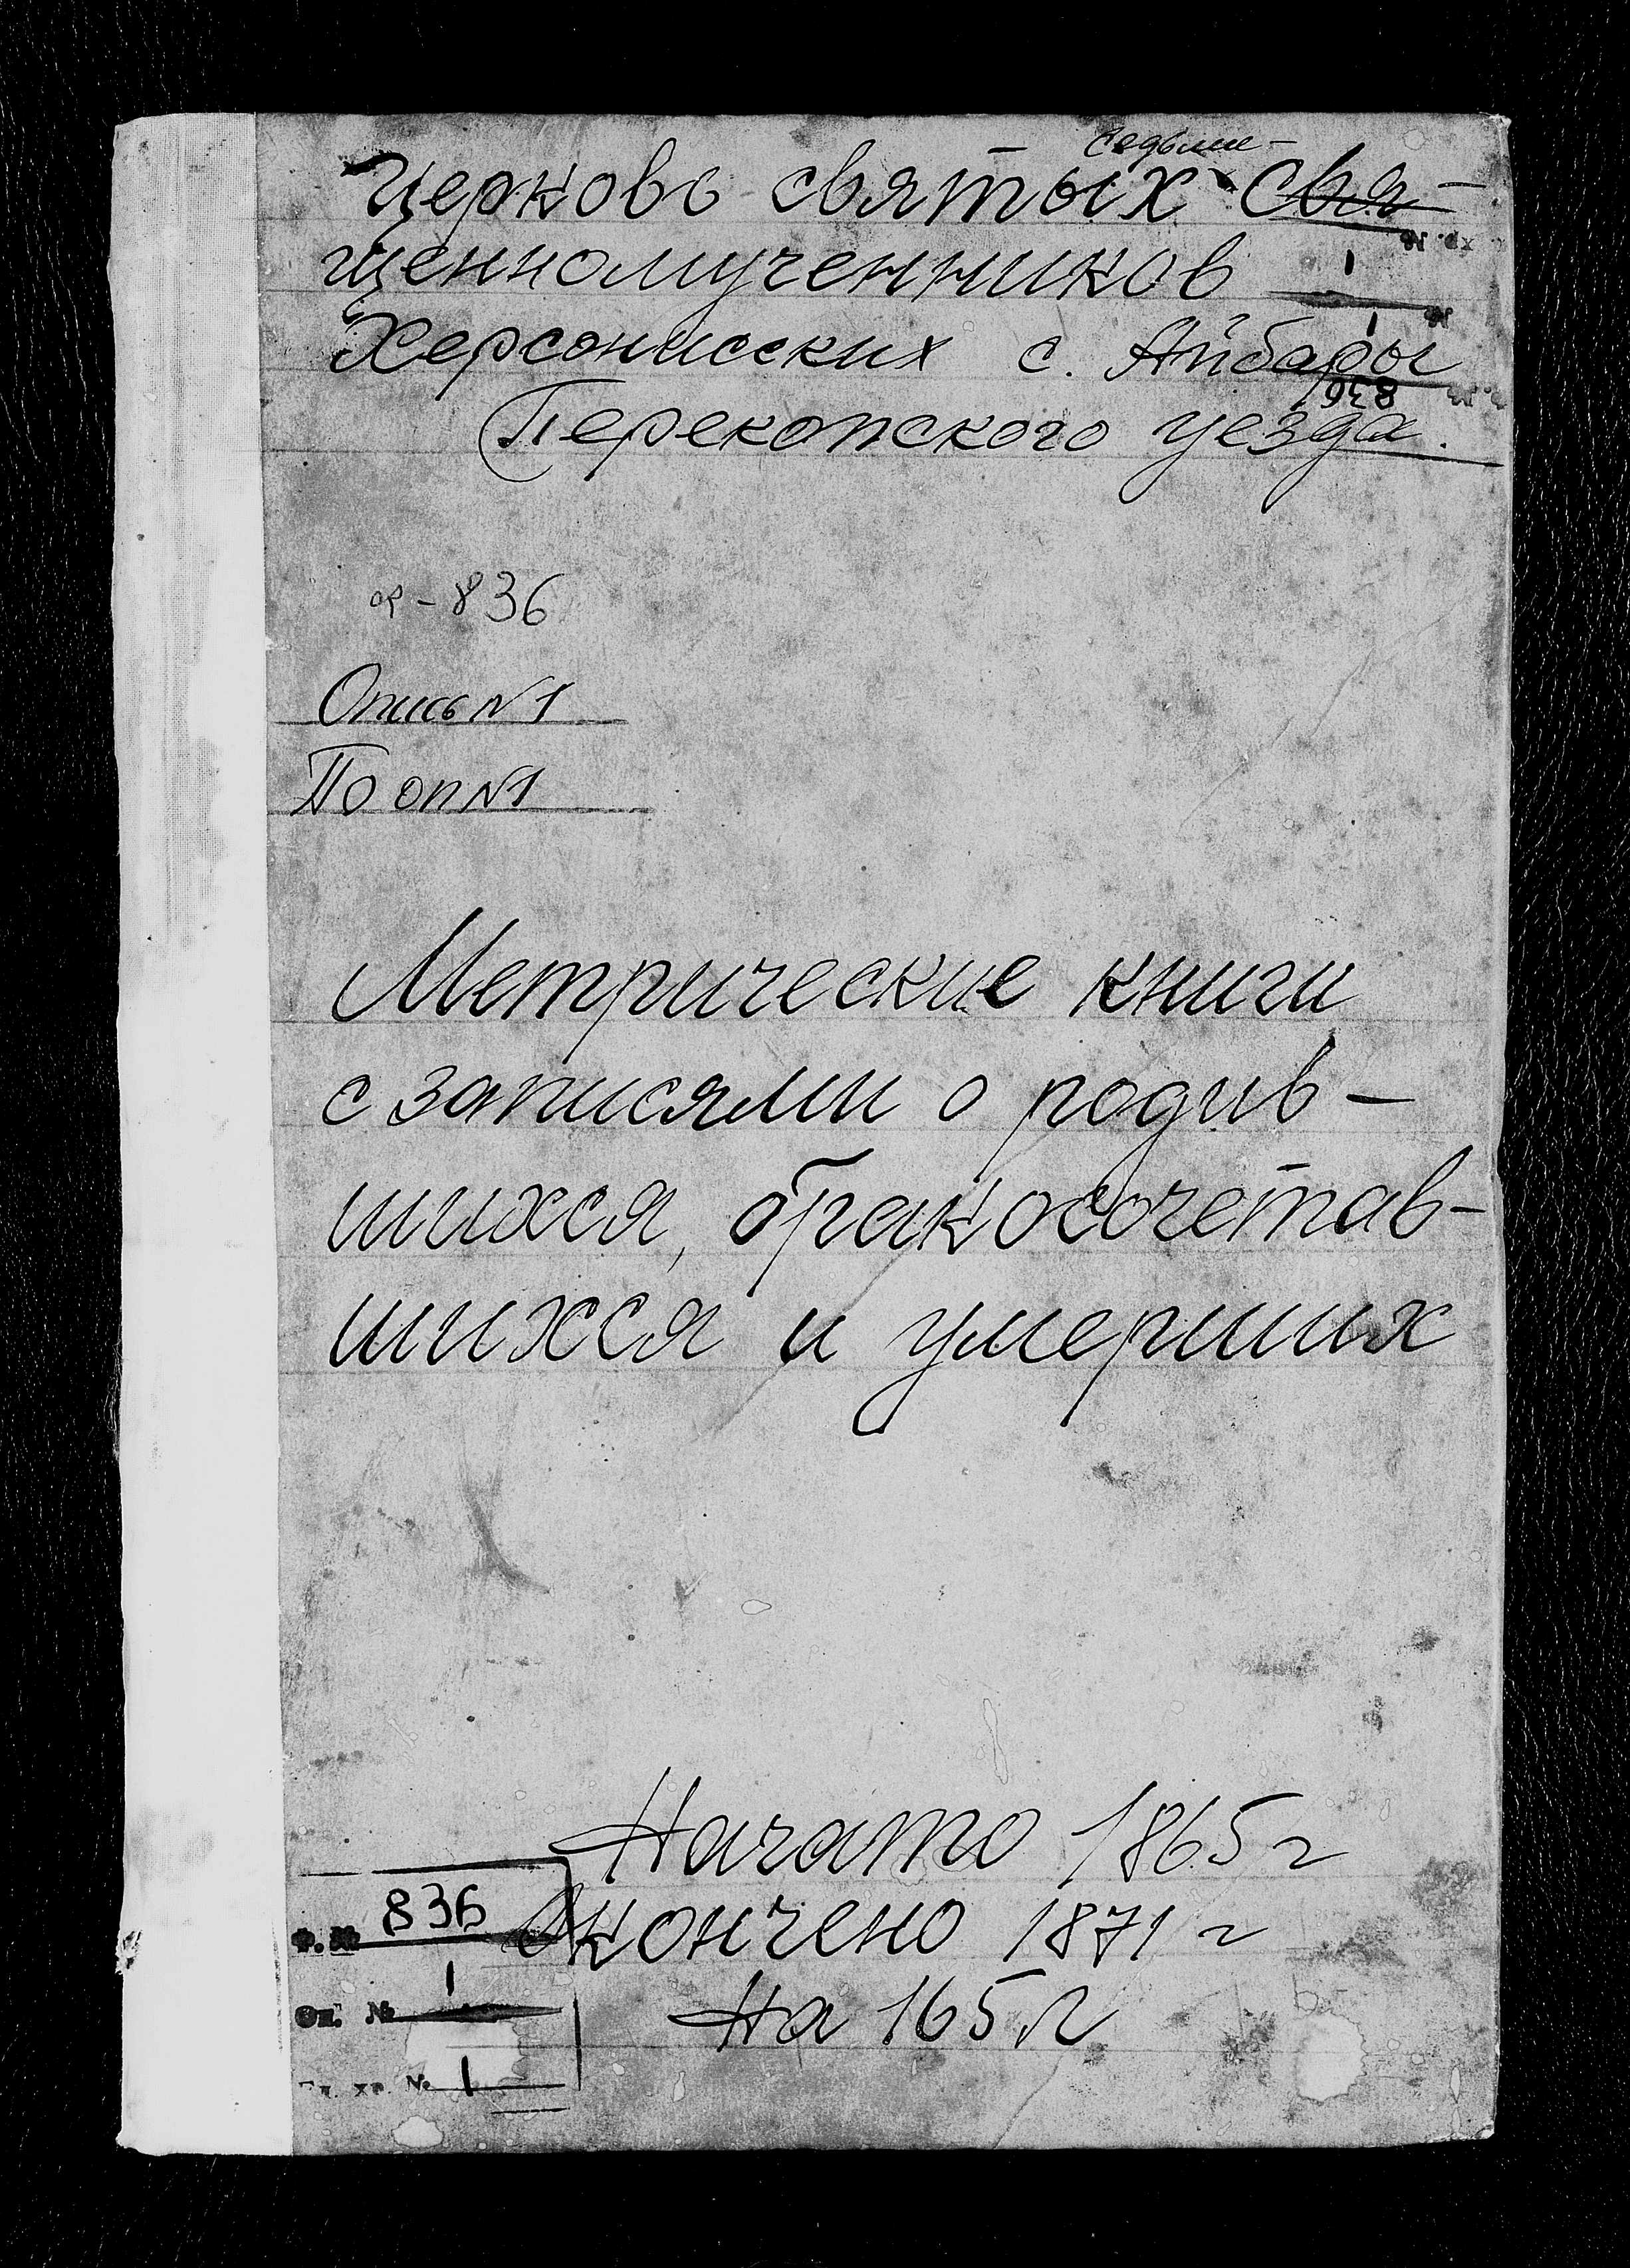 седьми-
Церковь святых свя-
щенномученников
Херсонисских с. Айбары
Перекопского уезда.
хр. №
1
№
1
836
ф-836
Опись №1
По оп №1
Метрические книги
с записями о родив-
шихся, бракосочетав-
шихся и умерших
Начато 1865 г
Окончено 1871 г
На 165 л
Ф. № 836
Оп. № 1
Ед. хр. № 1